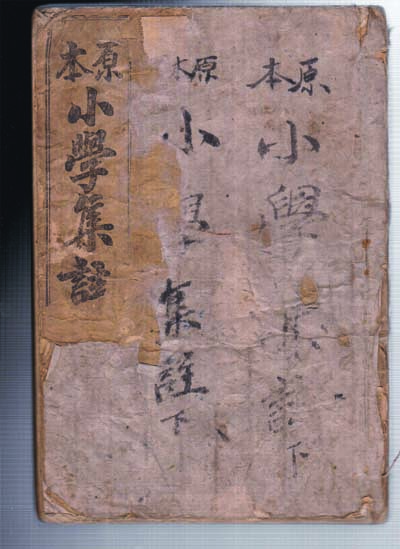 原本
小學集註下
原本
小學集註下
原本
小學集註